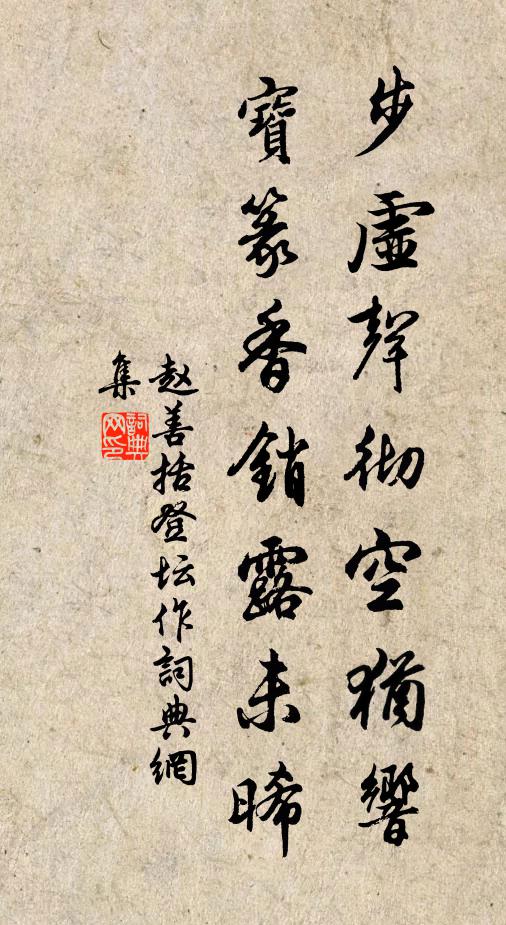 步虛聲彻空猶響
寶篆香銷露未晞
赵善括登坛作詞典網
集
詞典
网印